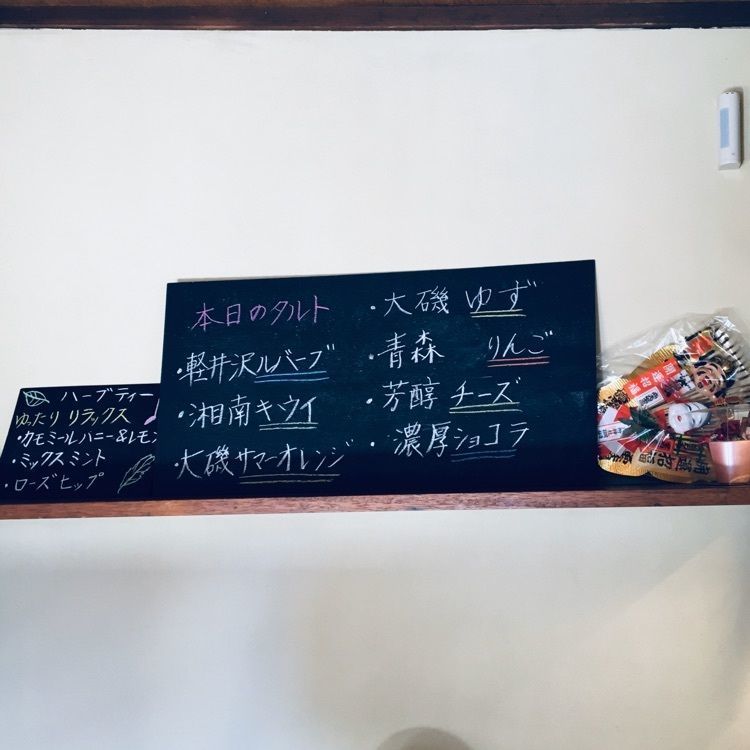 本日のタルト
・軽井沢ルバーブ
・湘南キウイ
・大磯サマーオレンジ
・大磯 ゆず
・青森 りんご
・芳醇 チーズ
・濃厚ショコラ
ハーブティー
ゆったり リラックス
・カモミールバニー&レモン
・ミックスミント
・ローズヒップ
開運招福